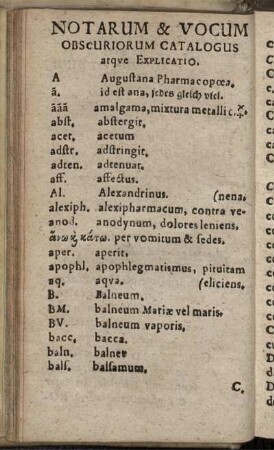 NOTARUM & VOCUM
OBSCURIORUM CATALOGUS
atqve EXPLICATIO.
A Augustana Pharmacopœa.
ã. id est ana, jedes gleich viel.
ããã amalgama, mixtura metalli c. ☿.
abst. abstergit.
acet. acetum
adstr. adstringit.
adten. adtenuat.
aff. affectus.
Al. Alexandrinus. (nena.
alexiph. alexipharmacum, contra ve-
anod. anodynum, dolores leniens.
ἄνω κ κάτω. per vomitum & sedes.
aper. aperit.
apophl. apophlegmatismus, pituitam
aq. aqva. (eliciens.
B. Balneum.
BM. balneum Mariæ vel maris.
BV. balneum vaporis.
bacc. bacca.
baln. balnea
bals. balsamum.
C.